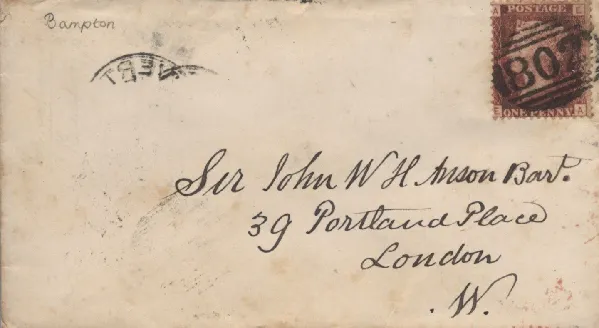 Bampton
POSTAGE
802
ONE PENNY
Sir John W H Anson Bart.
39 Portland Place
London
W.